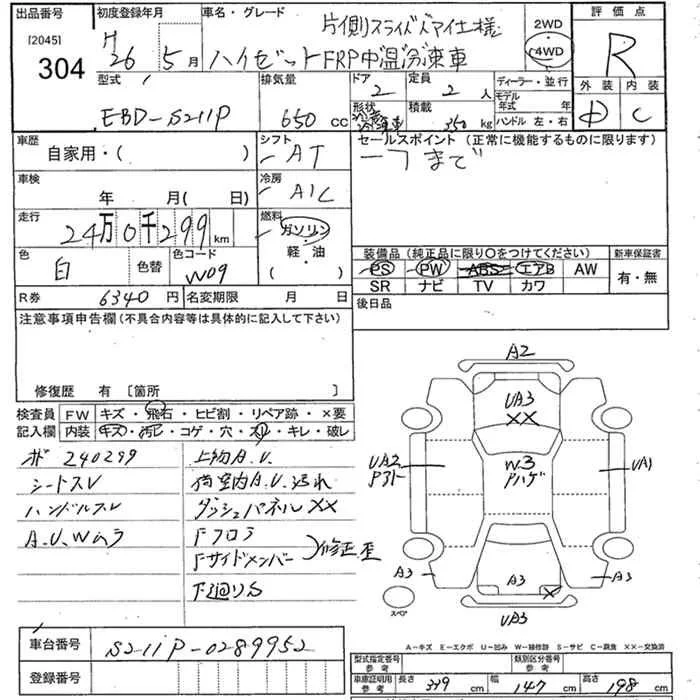 出品番号
[2045]
304
初度登録年月
H 26年 5月
車名・グレード
片側スライズズアイ仕様
ハイゼットFRP中温冷凍車
2WD
4WD
評価点
R
外装 内装
D C
型式
EBD-S211P
排気量
650 cc
ドア
2
定員
2人
形状
冷蔵冷凍車
積載
350 kg
ディーラー・並行
モデル年式 年
ハンドル 左・右
車歴
自家用・( )
シフト
AT
セールスポイント (正常に機能するものに限ります)
一フまで
車検
年 月( 日)
冷房
A/C
走行
24万0千299 km
燃料
ガソリン
軽・油
( ・ )
色
白
色替
色コード
W09
装備品 (純正品に限り〇をつけてください)
PS PW ABS エアB AW
SR ナビ TV カワ
新車保証書
有・無
R券 6340円
名変期限 月 日
後日品
注意事項申告欄 (不具合内容等は具体的に記入して下さい)
修復歴 有 〔箇所 〕
検査員記入欄
FW キズ・飛石・ヒビ割・リペア跡・×要
内装 キズ・汚レ・コゲ・穴・スレ・キレ・破レ
ポ 240299
シートスV
ハンドルスV
A.U.Wムラ
上物A.U.
荷室内A.U.汚れ
ダッシュパネル××
Fフロア
Fサイドメンバー
修正歪
下廻りS
A2
UA3
××
UA2
Pアト
W3
Pハゲ
UA1
A3
A3
×
A3
UA3
スペア
A-キズ E-エクボ U-凹み W-補修跡 S-サビ C-腐食 ××-交換済
車台番号
S211P-0289952
登録番号
型式指定番号
参考
類別区分番号
参考
車庫証明用
参考
長さ 339 cm
幅 147 cm
高さ 198 cm